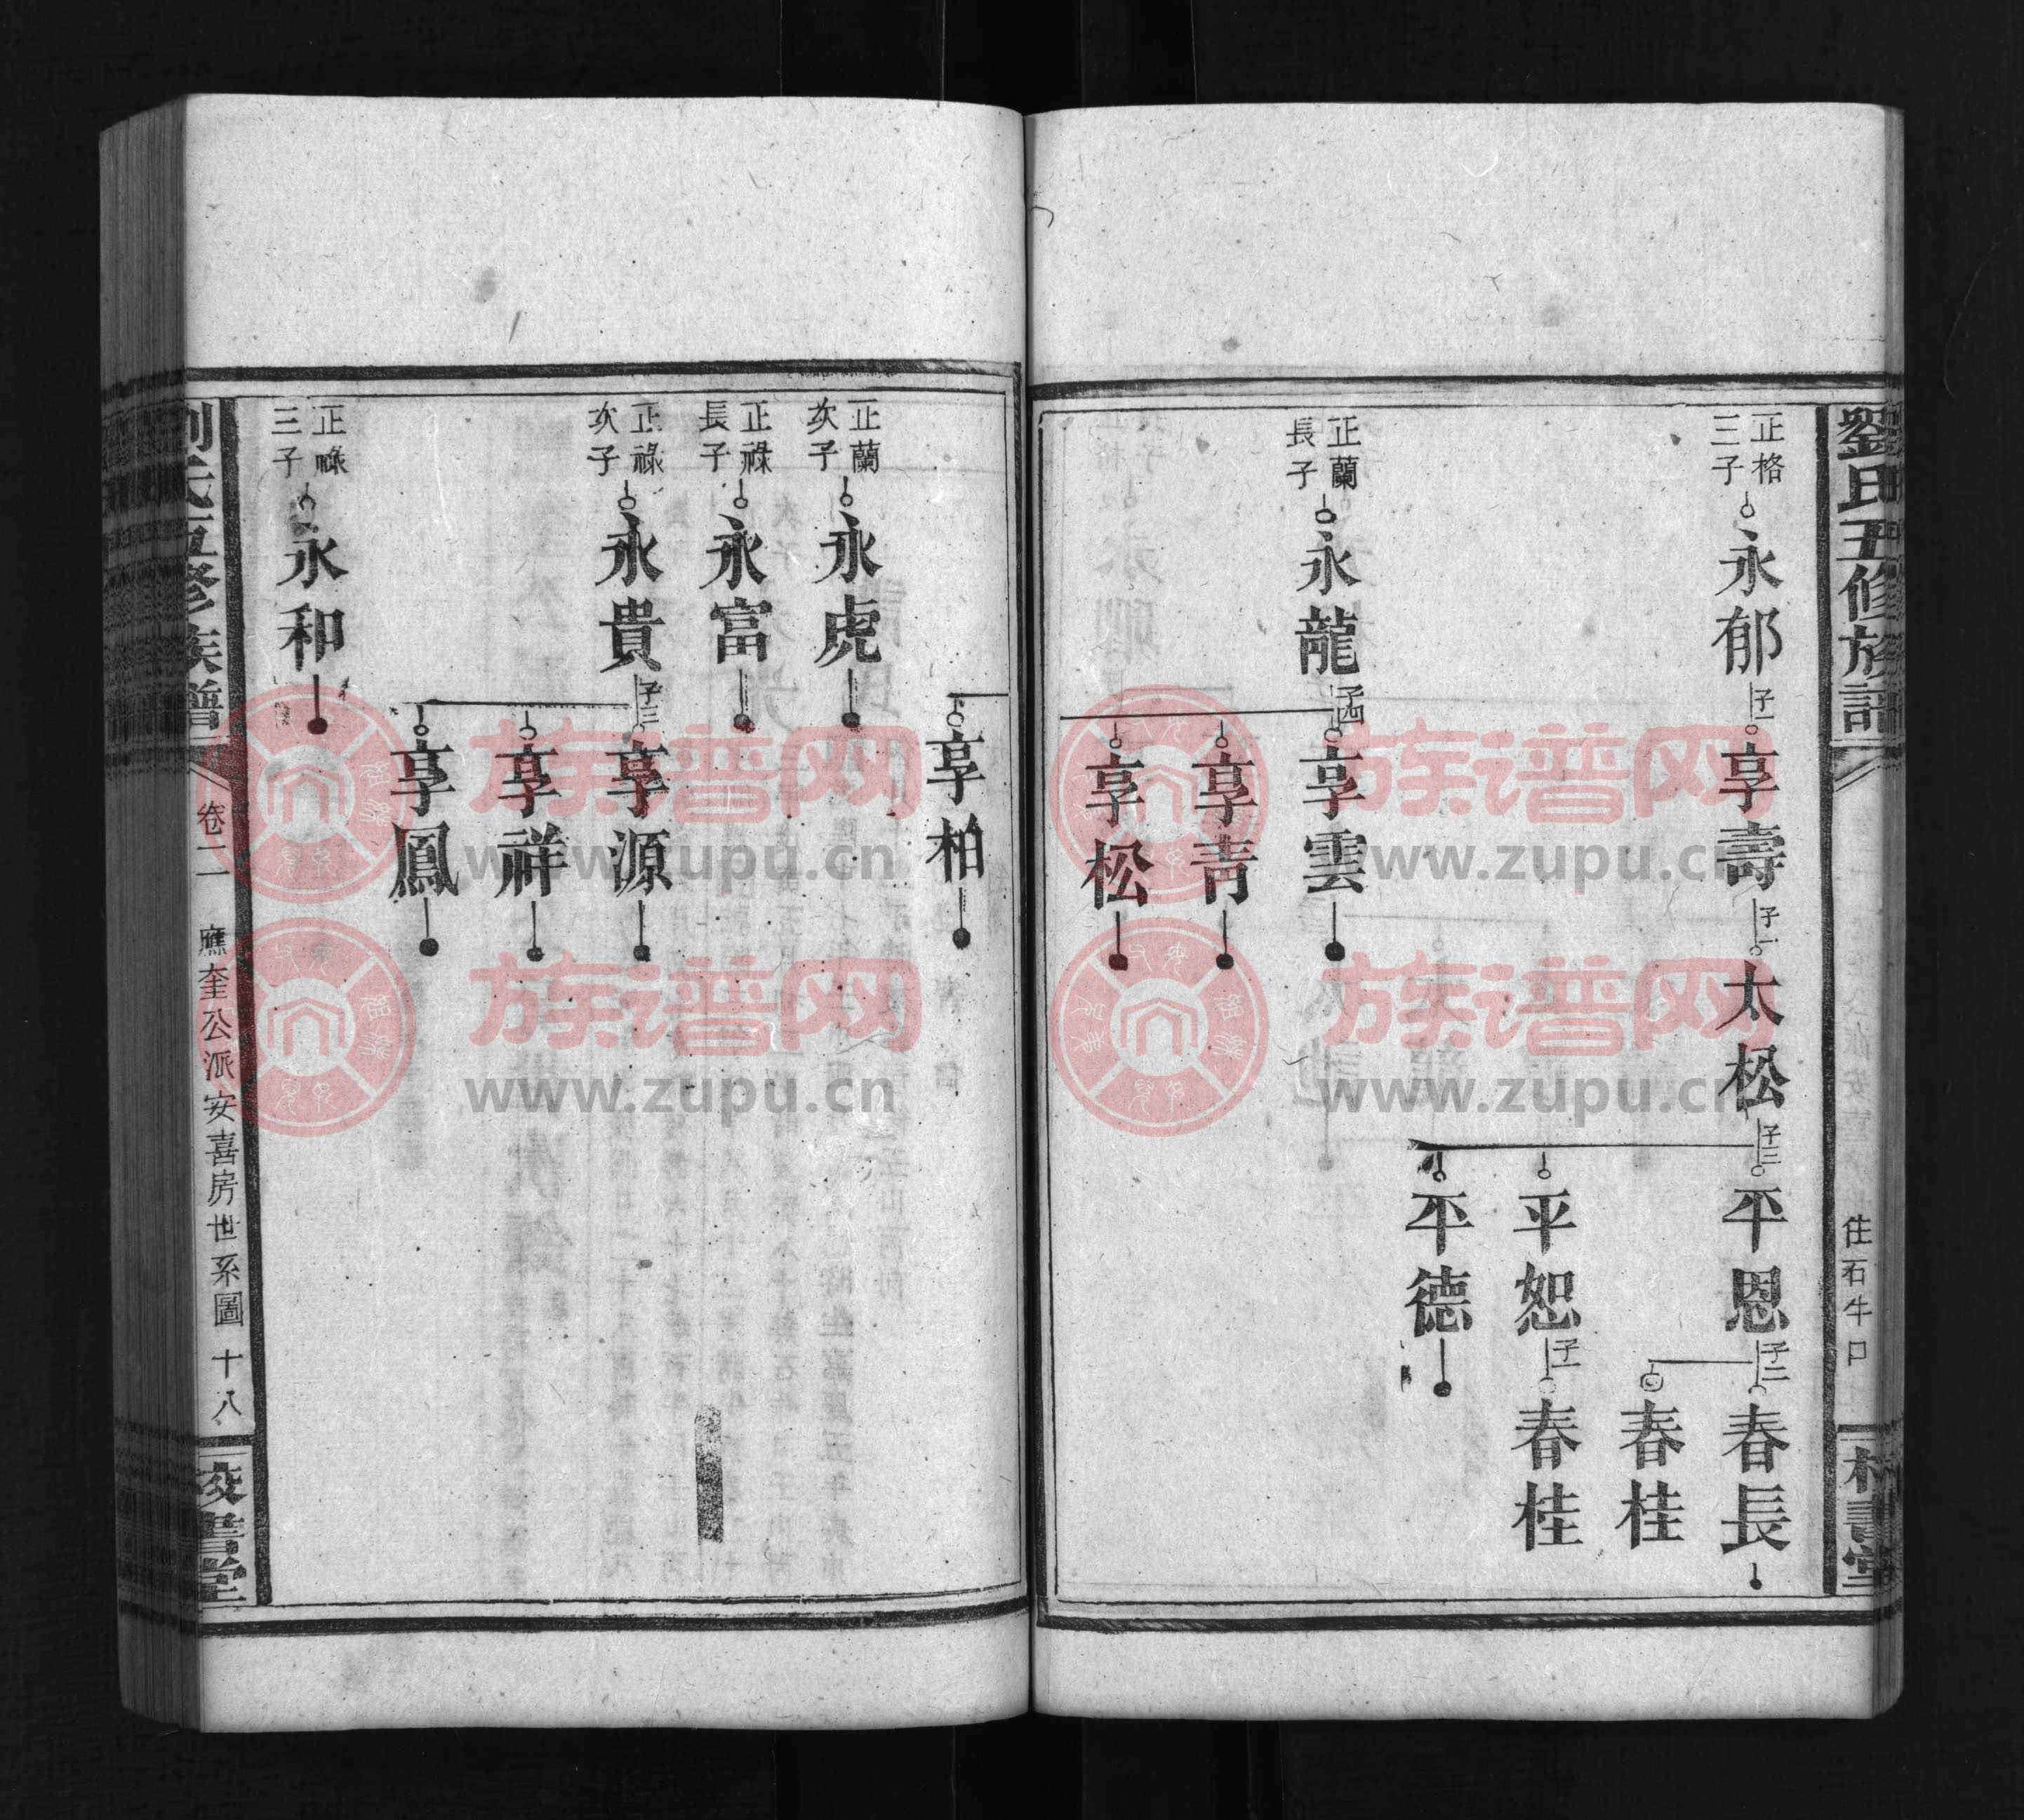 劉氏五修族譜
住石牛口
校書堂
正格
三子
永郁
子一
享壽
子一
太松
子三
平恩
子二
春長
春桂
平恕
子一
春桂
平德
正蘭
長子
永龍
子四
享雲
享青
享松
享柏
正蘭
次子
永虎
正祿
長子
永富
正祿
次子
永貴
子三
享源
享祥
享鳳
正祿
三子
永和
劉氏五修族譜
卷二
應奎公派安喜房世系圖
十八
校書堂
族谱网
www.zupu.cn
族谱网
www.zupu.cn
族谱网
www.zupu.cn
族谱网
www.zupu.cn